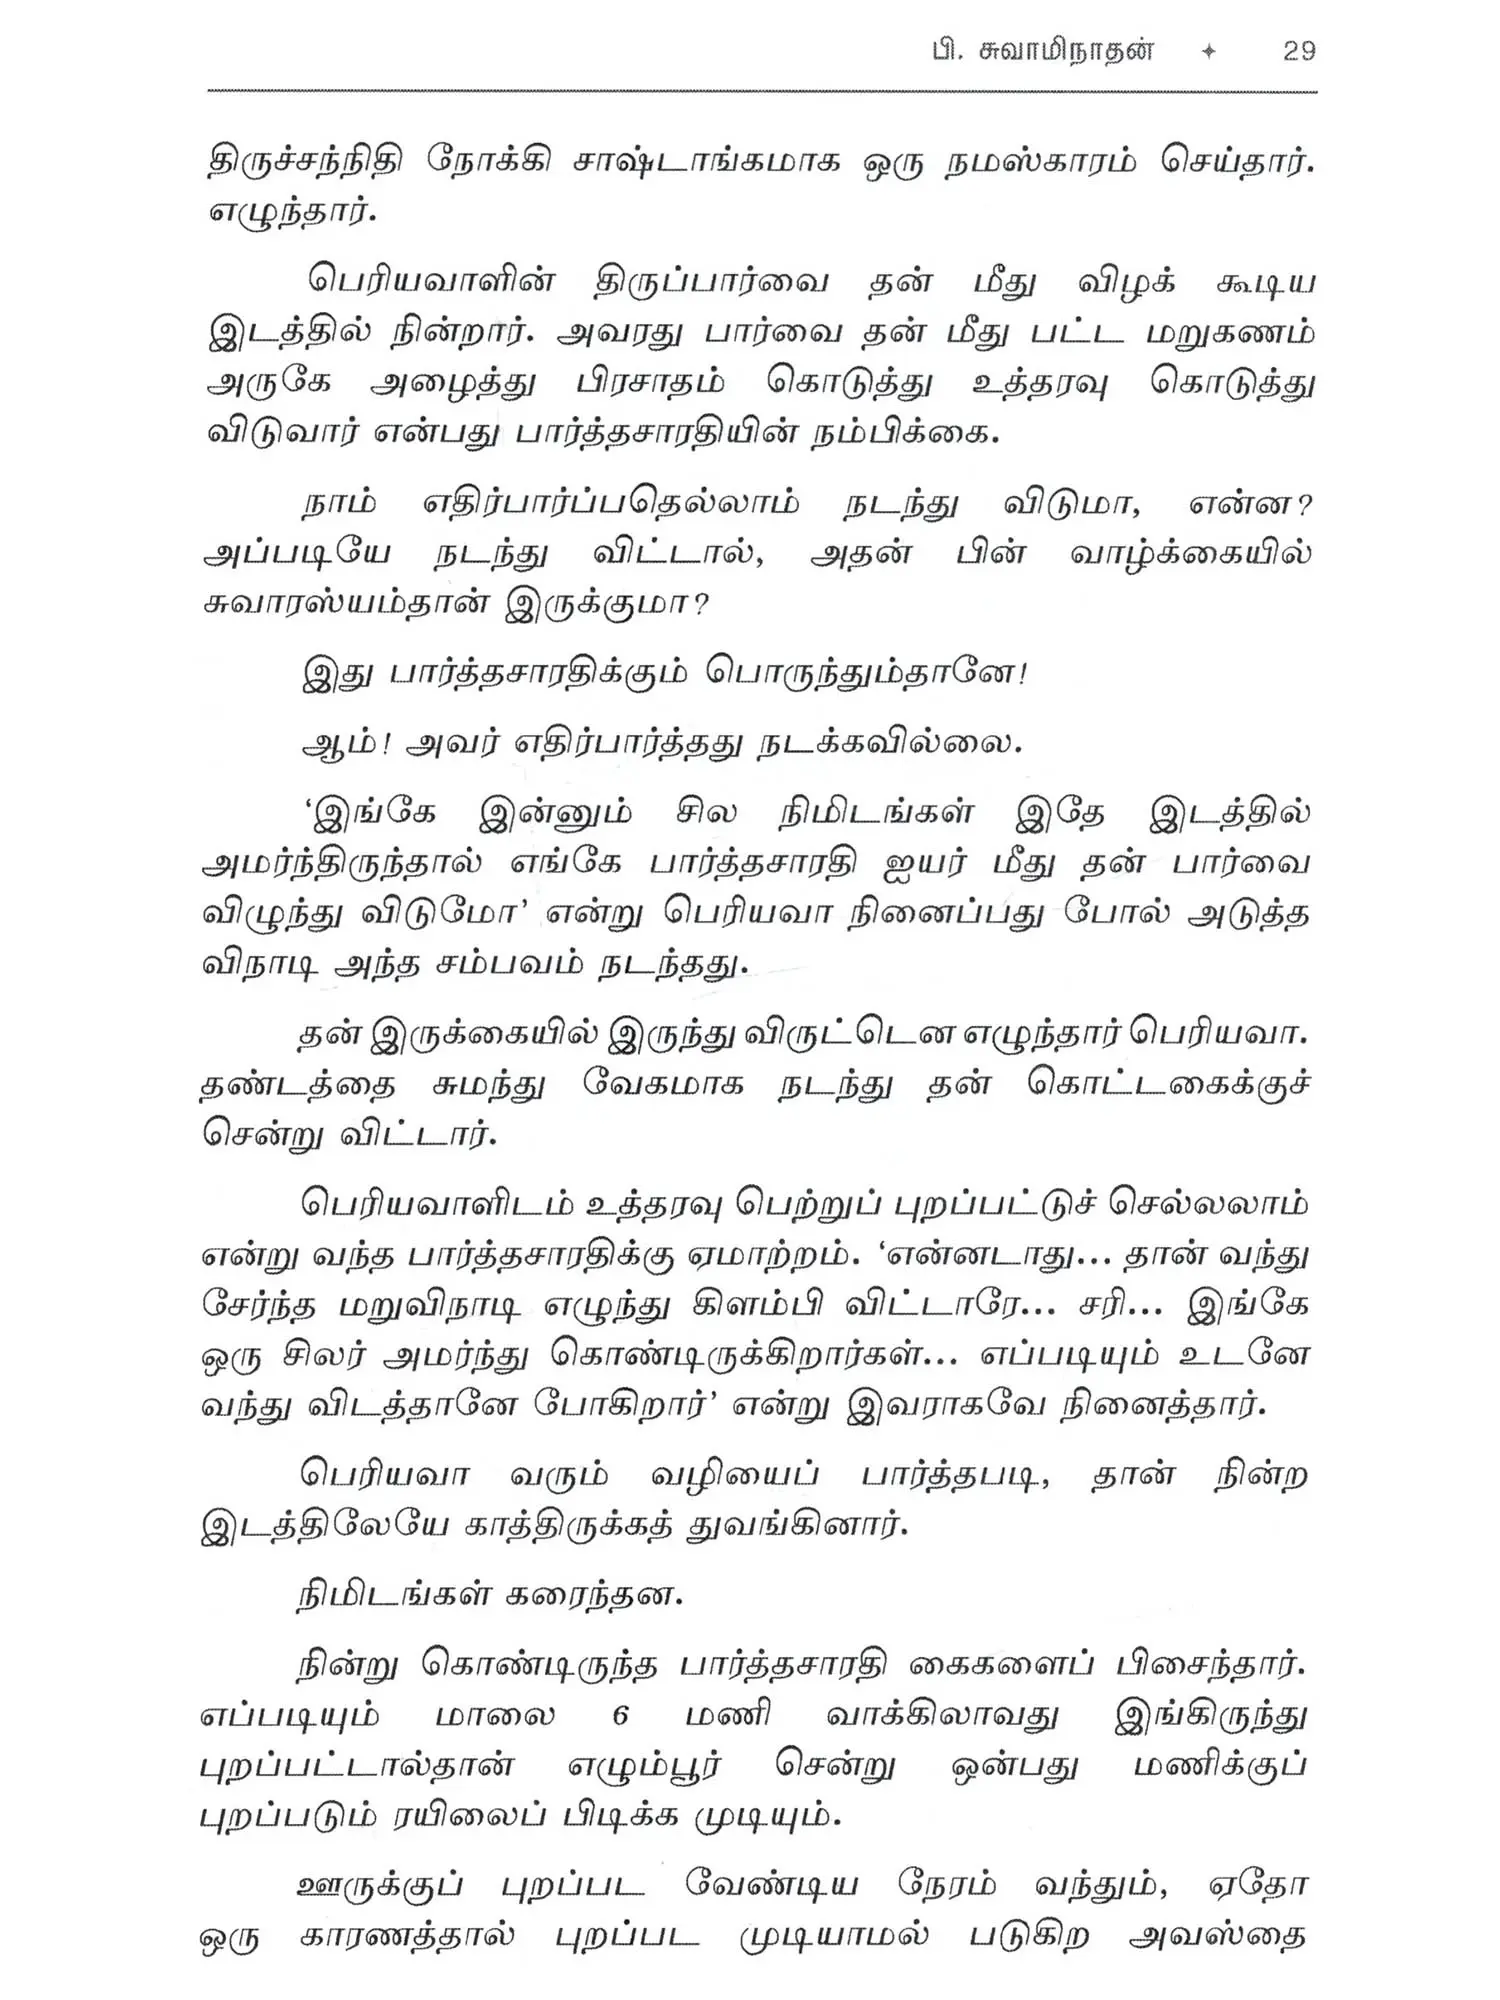 பி. சுவாமிநாதன் ✦ 29
திருச்சந்நிதி நோக்கி சாஷ்டாங்கமாக ஒரு நமஸ்காரம் செய்தார்.
எழுந்தார்.
பெரியவாளின் திருப்பார்வை தன் மீது விழக் கூடிய
இடத்தில் நின்றார். அவரது பார்வை தன் மீது பட்ட மறுகணம்
அருகே அழைத்து பிரசாதம் கொடுத்து உத்தரவு கொடுத்து
விடுவார் என்பது பார்த்தசாரதியின் நம்பிக்கை.
நாம் எதிர்பார்ப்பதெல்லாம் நடந்து விடுமா, என்ன?
அப்படியே நடந்து விட்டால், அதன் பின் வாழ்க்கையில்
சுவாரஸ்யம்தான் இருக்குமா?
இது பார்த்தசாரதிக்கும் பொருந்தும்தானே!
ஆம்! அவர் எதிர்பார்த்தது நடக்கவில்லை.
‘இங்கே இன்னும் சில நிமிடங்கள் இதே இடத்தில்
அமர்ந்திருந்தால் எங்கே பார்த்தசாரதி ஐயர் மீது தன் பார்வை
விழுந்து விடுமோ’ என்று பெரியவா நினைப்பது போல் அடுத்த
விநாடி அந்த சம்பவம் நடந்தது.
தன் இருக்கையில் இருந்து விருட்டென எழுந்தார் பெரியவா.
தண்டத்தை சுமந்து வேகமாக நடந்து தன் கொட்டகைக்குச்
சென்று விட்டார்.
பெரியவாளிடம் உத்தரவு பெற்றுப் புறப்பட்டுச் செல்லலாம்
என்று வந்த பார்த்தசாரதிக்கு ஏமாற்றம். ‘என்னடாது... தான் வந்து
சேர்ந்த மறுவிநாடி எழுந்து கிளம்பி விட்டாரே... சரி... இங்கே
ஒரு சிலர் அமர்ந்து கொண்டிருக்கிறார்கள்... எப்படியும் உடனே
வந்து விடத்தானே போகிறார்’ என்று இவராகவே நினைத்தார்.
பெரியவா வரும் வழியைப் பார்த்தபடி, தான் நின்ற
இடத்திலேயே காத்திருக்கத் துவங்கினார்.
நிமிடங்கள் கரைந்தன.
நின்று கொண்டிருந்த பார்த்தசாரதி கைகளைப் பிசைந்தார்.
எப்படியும் மாலை 6 மணி வாக்கிலாவது இங்கிருந்து
புறப்பட்டால்தான் எழும்பூர் சென்று ஒன்பது மணிக்குப்
புறப்படும் ரயிலைப் பிடிக்க முடியும்.
ஊருக்குப் புறப்பட வேண்டிய நேரம் வந்தும், ஏதோ
ஒரு காரணத்தால் புறப்பட முடியாமல் படுகிற அவஸ்தை